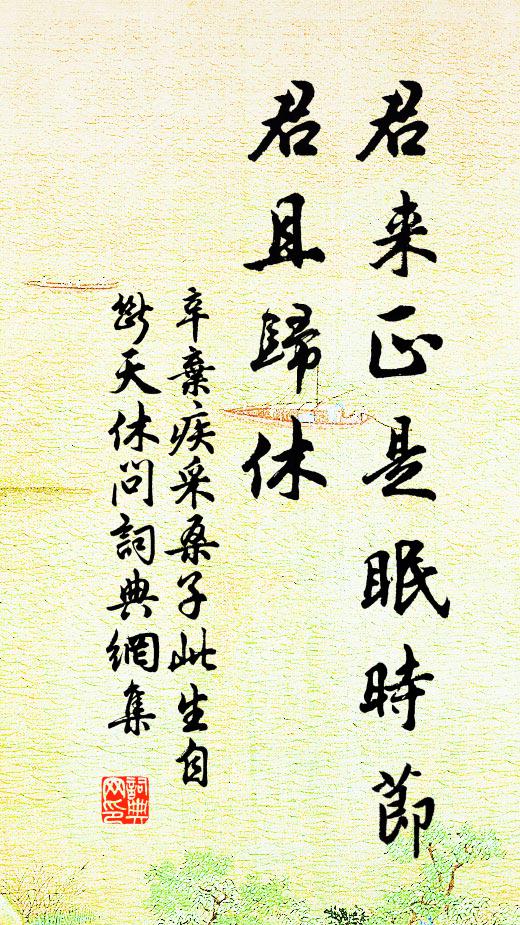 君来正是眠時節
君且歸休
辛棄疾采桑子此生自
斷天休問詞典網集
詞典
网印